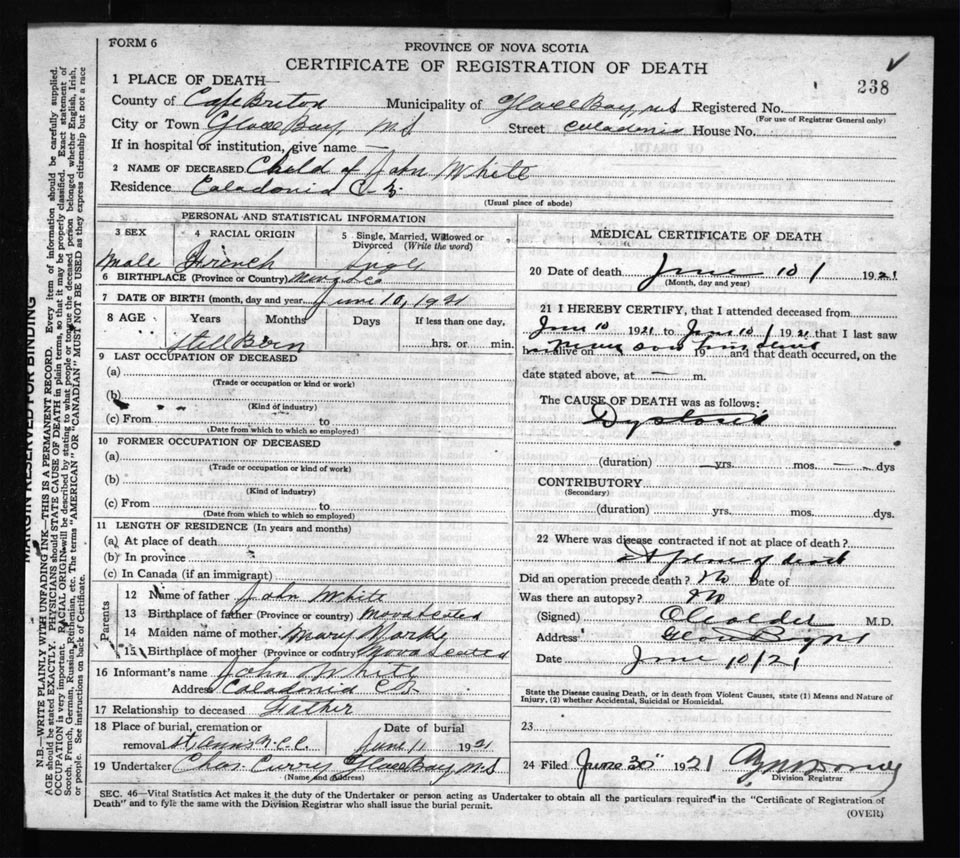 FORM 6
PROVINCE OF NOVA SCOTIA
CERTIFICATE OF REGISTRATION OF DEATH
238
1 PLACE OF DEATH—
County of Cape Breton Municipality of Glace Bay, N.S Registered No.
(For use of Registrar General only)
City or Town Glace Bay, N.S Street Caladonia House No.
If in hospital or institution, give name —
2 NAME OF DECEASED Child of John White
Residence Caladonia C.B.
(Usual place of abode)
PERSONAL AND STATISTICAL INFORMATION
3 SEX 4 RACIAL ORIGIN 5 Single, Married, Widowed or Divorced (Write the word)
Male French Single
6 BIRTHPLACE (Province or Country)
7 DATE OF BIRTH (month, day and year) June 10, 1921
8 AGE Years Months Days If less than one day,
Still Born hrs. or min.
9 LAST OCCUPATION OF DECEASED
(a)
(Trade or occupation or kind or work)
(b)
(Kind of industry)
(c) From to
(Date from which to which so employed)
10 FORMER OCCUPATION OF DECEASED
(a)
(Trade or occupation or kind of work)
(b)
(Kind of industry)
(c) From to
(Date from which to which so employed)
11 LENGTH OF RESIDENCE (In years and months)
(a) At place of death
(b) In province
(c) In Canada (if an immigrant)
Parents
12 Name of father John White
13 Birthplace of father (Province or country) Nova Scotia
14 Maiden name of mother Mary
15 Birthplace of mother (Province or country) Nova Scotia
16 Informant's name John White
Address Caladonia C.B.
17 Relationship to deceased Father
18 Place of burial, cremation or removal St Anns Date of burial June 11 1921
19 Undertaker Chas. Curry Glace Bay N.S
(Name and Address)
MEDICAL CERTIFICATE OF DEATH
20 Date of death June 10 1921
(Month, day and year)
21 I HEREBY CERTIFY, that I attended deceased from
June 10 1921 to June 10 1921 that I last saw
h alive on never saw him alive 19 and that death occurred, on the
date stated above, at — m.
The CAUSE OF DEATH was as follows:
(duration) — yrs. mos. — dys
CONTRIBUTORY
(Secondary)
(duration) yrs. mos. dys.
22 Where was disease contracted if not at place of death?
At place of death
Did an operation precede death? No Date of
Was there an autopsy? No
(Signed) M.D.
Address
Date June 10/21
State the Disease causing Death, or in death from Violent Causes, state (1) Means and Nature of
Injury, (2) whether Accidental, Suicidal or Homicidal.
23
24 Filed June 30 1921
Division Registrar
SEC. 46—Vital Statistics Act makes it the duty of the Undertaker or person acting as Undertaker to obtain all the particulars required in the "Certificate of Registration of
Death" and to fyle the same with the Division Registrar who shall issue the burial permit.
(OVER)
MARGIN RESERVED FOR BINDING
N.B.—WRITE PLAINLY WITH UNFADING INK—THIS IS A PERMANENT RECORD. Every item of information should be carefully supplied.
AGE should be stated EXACTLY. PHYSICIANS should STATE CAUSE OF DEATH in plain terms, so that it may be properly classified. Exact statement of
OCCUPATION is very important. RACIAL ORIGIN will be described by stating to what people or tongue the deceased person belonged whether English, Irish,
Scotch, French, German, Russian, Ruthenian, etc. The terms "AMERICAN" or "CANADIAN" MUST NOT BE USED as they express citizenship but not a race
or people. See instructions on back of Certificate.